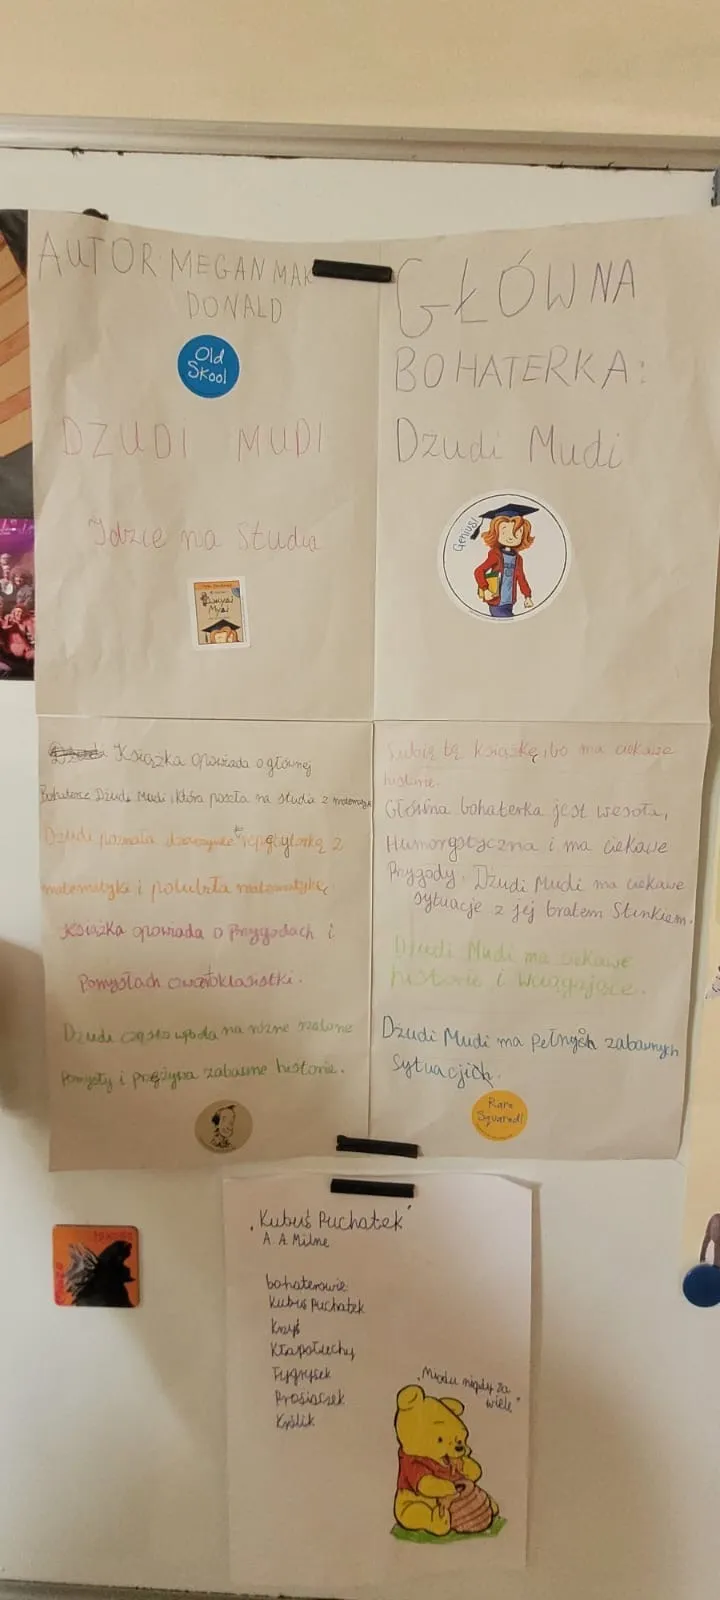 AUTOR MEGAN MAK
DONALD
Old
Skool
DŻUDI MUDI
Idzie na Studia
GŁÓWNA
BOHATERKA:
Dżudi Mudi
Genius!
Książka opowiada o głównej
Bohaterce Dżudi Mudi, która poszła na studia z matematyki
Dżudi poznała dziewczynę repetytorką z
matematyki i polubiła matematykę
Książka opowiada o Przygodach i
Pomysłach czwartoklasistki.
Dżudi często wpada na różne szalone
Pomysły i przeżywa zabawne historie.
Lubię tę książkę, bo ma ciekawe
historie.
Główna bohaterka jest wesoła,
Humorystyczna i ma ciekawe
Przygody. Dżudi Mudi ma ciekawe
sytuacje z jej bratem Stinkiem.
Dżudi Mudi ma ciekawe
historie i wciągające.
Dżudi Mudi ma pełnych zabawnych
sytuacjich.
Rare
Squared!
„Kubuś Puchatek"
A. A Milne
bohaterowie:
Kubuś Puchatek
Krzyś
Kłapołuchy
Tygrysek
Prosiaczek
Królik
„Miodu nigdy za
wiele"